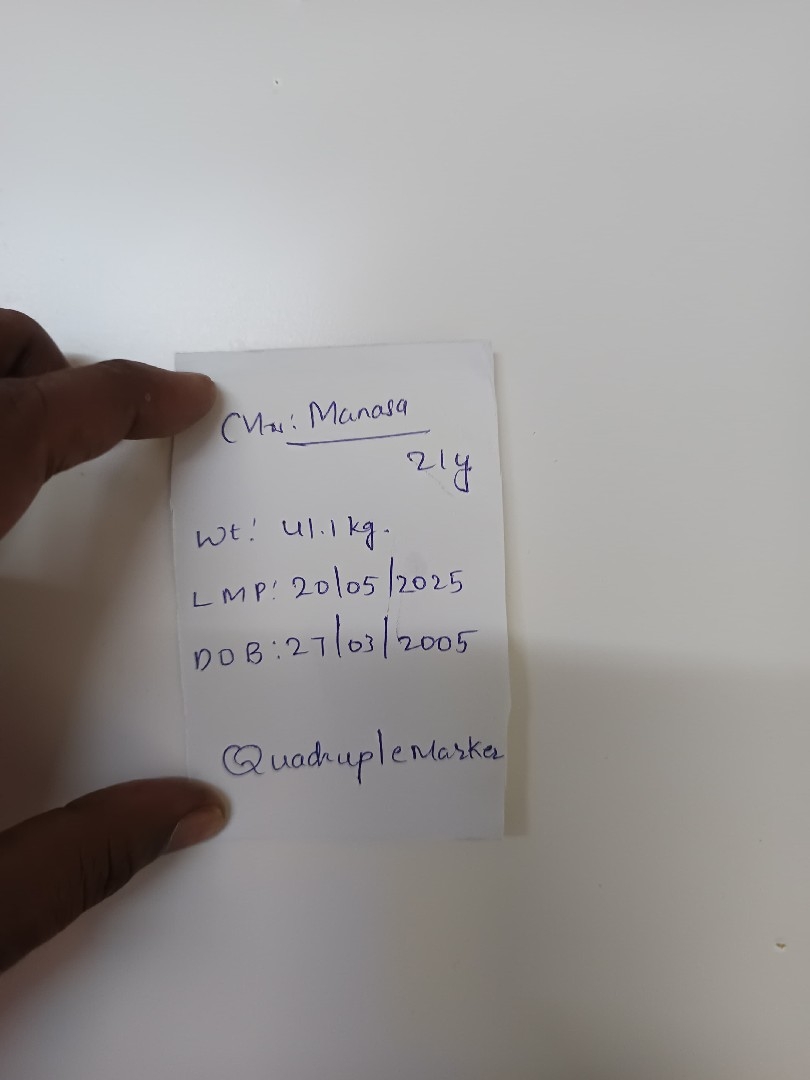 Mrs: Manasa
21y
Wt: 41.1 kg.
LMP: 20/05/2025
DOB: 27/03/2005
Quadruple Marker